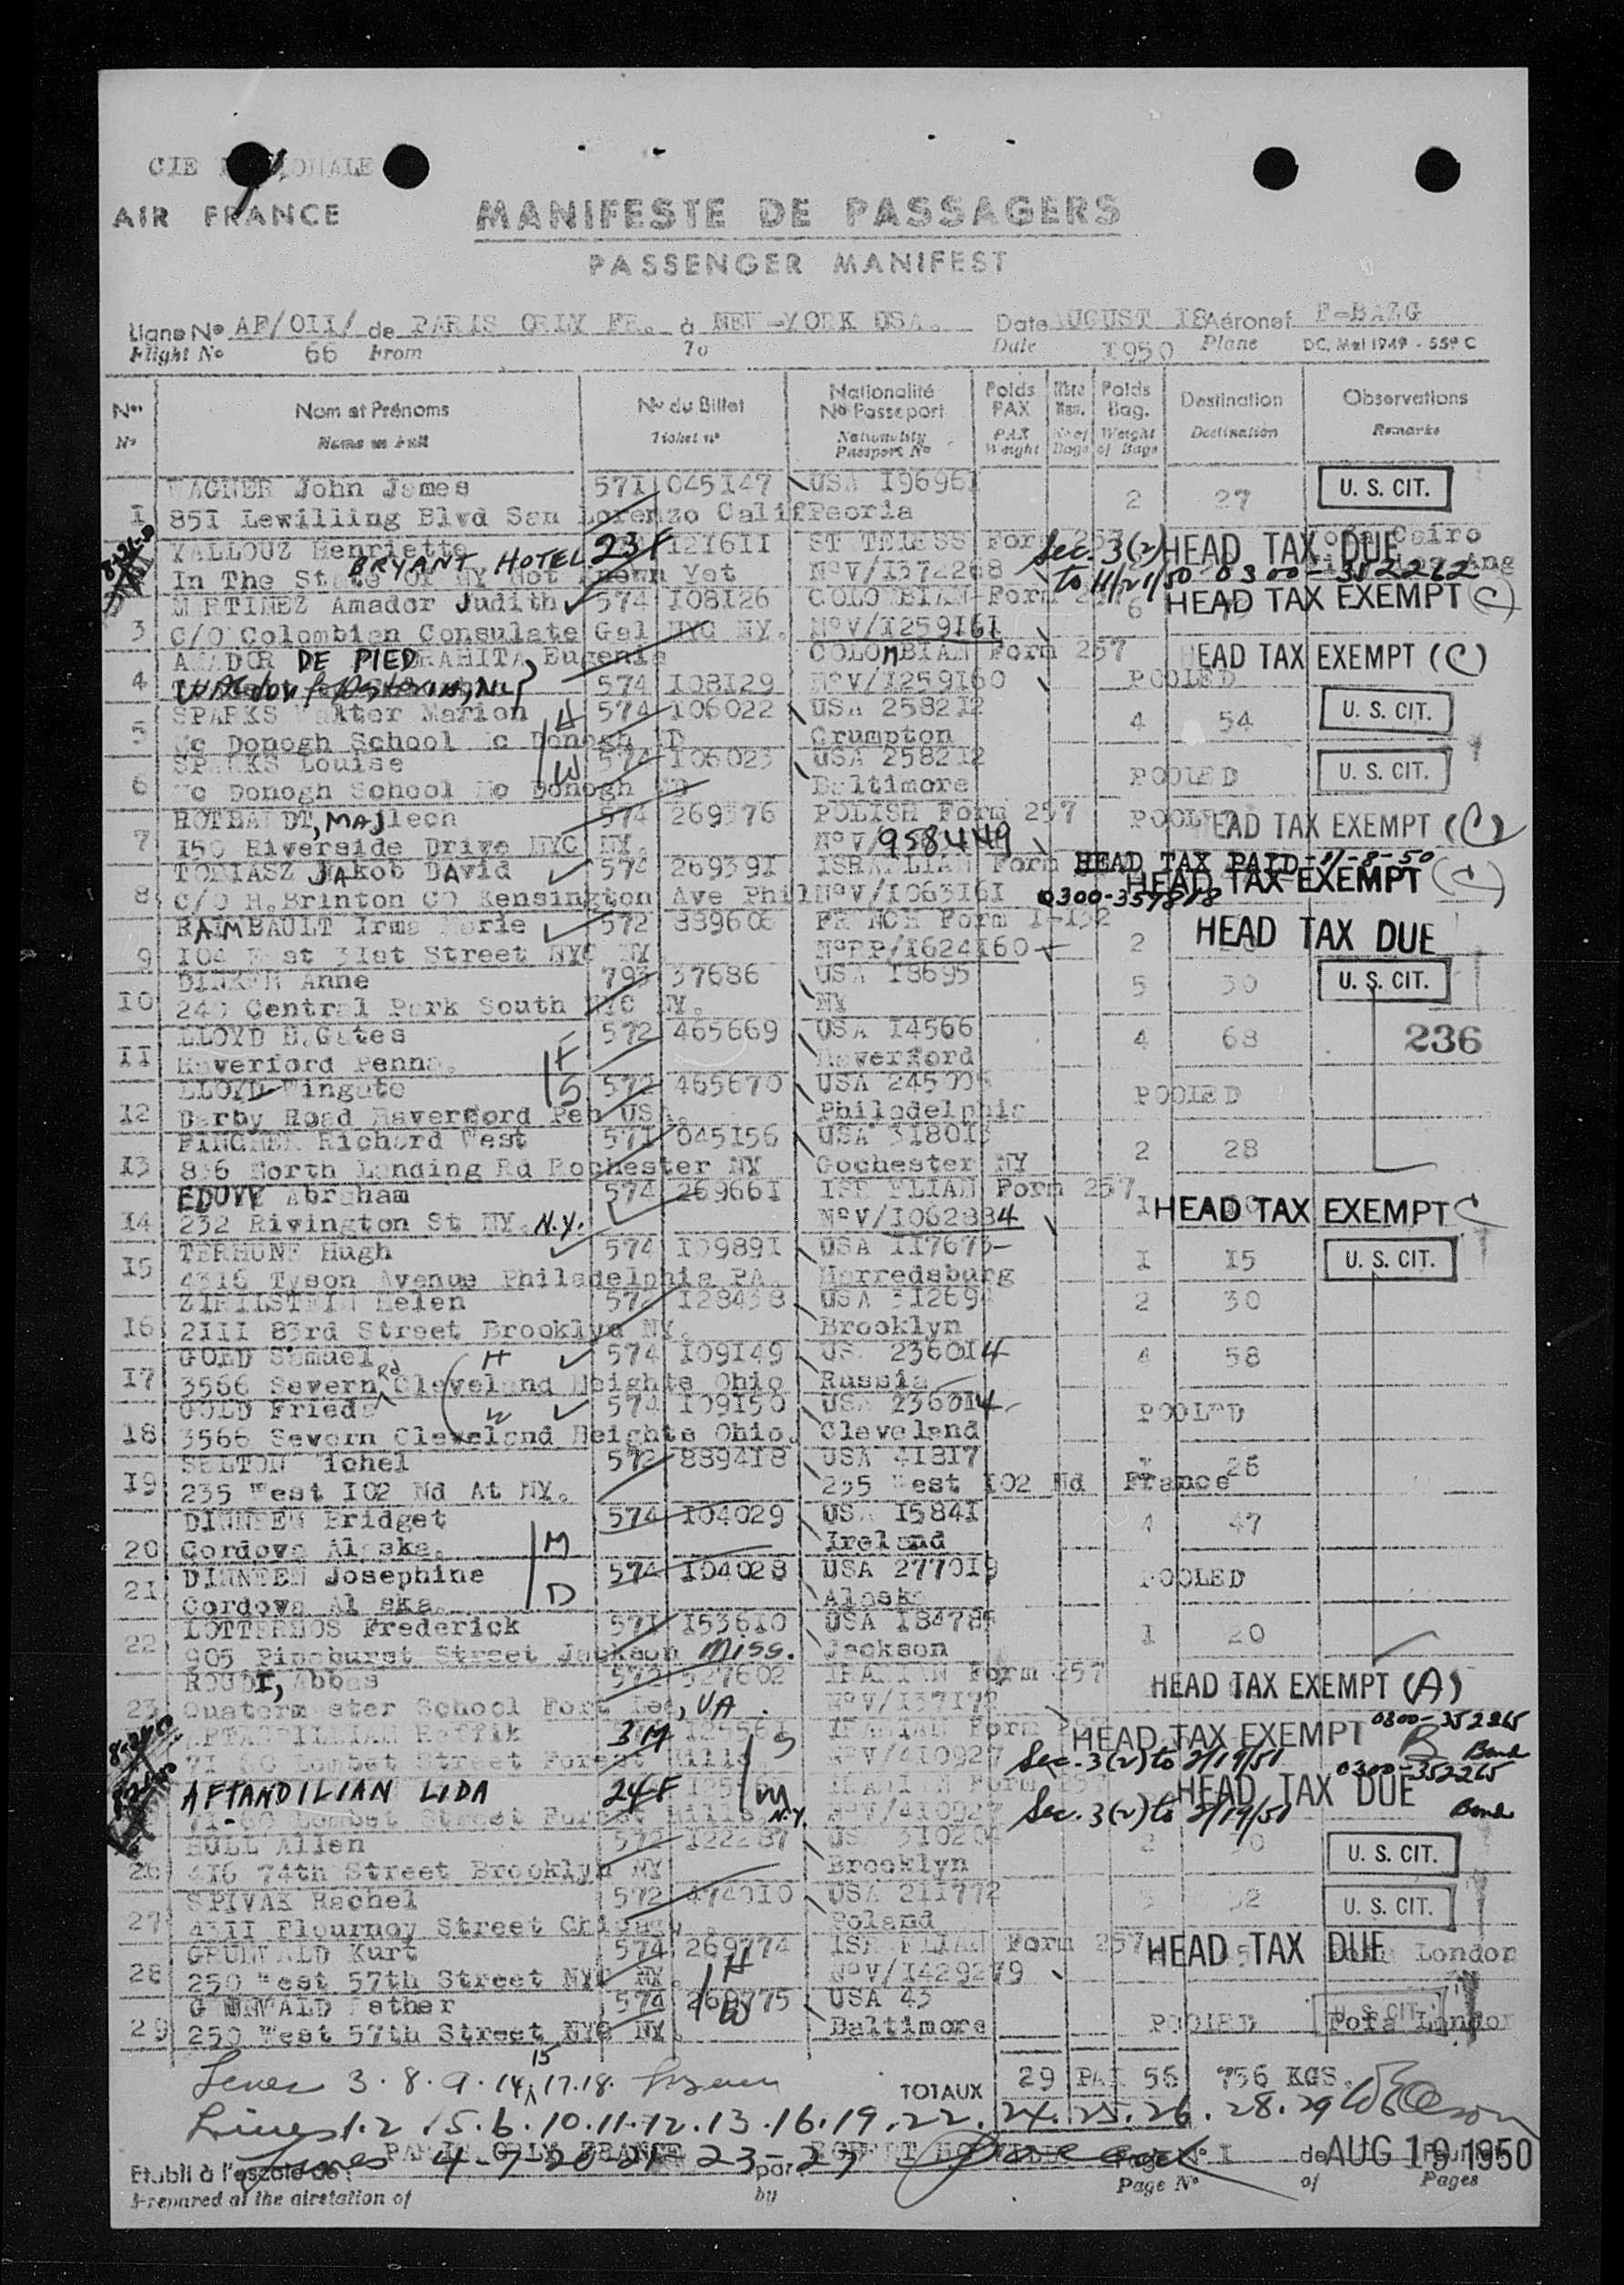 CIE NATIONALE
AIR FRANCE
MANIFESTE DE PASSAGERS
PASSENGER MANIFEST
Ligne No AF/OII/ de PARIS ORLY FR. à NEW-YORK USA. Date AUGUST I8 Aéronef F-BAZG
Flight No 66 From To Date I950 Plane DC. Mel 1949 - 559 C
Nos Nom et Prénoms No du Billet Nationalité No Passeport Poids PAX Nbre Bag. Poids Bag. Destination Observations
No Name in full Ticket no Nationality Passport No PAX Weight No of Bags Weight of Bags Destination Remarks
WAGNER John James 57I 045I47 USA I9696I U. S. CIT.
I 85I Lewilling Blvd San Lorenzo Calif Peoria 2 27
8-21-50 YALLOUZ Henriette 23F I2I6II STATELESS Form 257 Sec. 3(2) HEAD TAX DUE Cairo
In The State Of NY Not Known Yet BRYANT HOTEL NoV/I372268 to 11/21/50 0300-352262
MARTINEZ Amador Judith 574 I08I26 COLOMBIAN Form 257 6 HEAD TAX EXEMPT (C)
3 C/O Colombian Consulate Gel NYC NY. NoV/I259I6I
AMADOR DE PIEDRAHITA, Eugenia COLOMBIAN Form 257 HEAD TAX EXEMPT (C)
4 574 I08I29 NoV/I259I60 POOLED
SPARKS Walter Marion H 574 I06022 USA 2582I2 U. S. CIT.
5 Mc Donogh School Mc Donogh MD Crumpton 4 54
SPARKS Louise W 574 I06023 USA 2582I2 U. S. CIT.
6 Mc Donogh School Mc Donogh MD Baltimore POOLED
ROTBANDT, MAJlech 574 269376 POLISH Form 257 POOLED HEAD TAX EXEMPT (C)
7 I50 Riverside Drive NYC NY. NoV/958449
TOBIASZ JAkob DAvid 574 26939I ISRAELIAN Form HEAD TAX PAID-11-8-50
8 C/O H.Brinton CO Kensington Ave Phil NoV/I063I6I 0300-357818 HEAD TAX EXEMPT (C)
RAIMBAULT Irma Marie 572 889606 FRENCH Form I-I32 HEAD TAX DUE
9 I04 East 3Ist Street NYC NY NoPP/I624I60 2
DINKEN Anne 793 37686 USA I8695 U. S. CIT.
I0 240 Central Park South NYC NY. NY 5 30
LLOYD H.Gates F 572 465669 USA I4566 236
II Haverford Penna. Haverford 4 68
LLOYD Wingate S 572 465670 USA 24500
I2 Darby Road Haverford Pen USA. Philadelphia POOLED
PINGREE Richard West 57I 045I56 USA 3I80I
I3 856 North Landing Rd Rochester NY Gochester NY 2 28
EDUVY Abraham 574 26966I ISRAELIAN Form 257
I4 232 Rivington St NY. N.Y. NoV/I062884 I HEAD TAX EXEMPT C
TERHUNE Hugh 574 I0989I USA II7673 U. S. CIT.
I5 43I6 Tyson Avenue Philadelphia PA. Harredsburg I I5
Helen 572 I28438 USA 3I2694
I6 2III 83rd Street Brooklyn NY. Brooklyn 2 30
GOLD Samuel H 574 I09I49 USA 236014
I7 3566 Severn Rd Cleveland Heights Ohio Russia 4 58
GOLD Frieda W 574 I09I50 USA 236014
I8 3566 Severn Cleveland Heights Ohio. Cleveland POOLED
SELTON Michel 572 8894I8 USA 4I8I7
I9 235 West I02 Nd At NY. 235 West I02 Nd France 26
DINNEEN Bridget 574 I04029 USA I584I
20 Cordova Alaska. M Ireland 4 47
DINNEEN Josephine 574 I04028 USA 2770I9
2I Cordova Alaska. D Alaska POOLED
LOTTERHOS Frederick 57I I536I0 USA I8478
22 905 Pinehurst Street Jackson Miss. Jackson I 20
ROUDI, Abbas 572 527602 IRANIAN Form 257 HEAD TAX EXEMPT (A)
23 Quatermaster School Fort Lee, VA. NoV/I37I7
AFTANDILIAN Raffik 3M I2556 IRANIAN Form HEAD TAX EXEMPT 0300-352265
7I-60 Lombet Street Forest Hills S NoV/4I0927 Sec. 3(2) to 2/19/51 B Bond
AFTANDILIAN LIDA 24F IRANIAN Form HEAD TAX DUE 0300-352265
7I-60 Lombet Street Forest Hills N.Y. M NoV/4I0927 Sec. 3(2) to 2/19/51 Bond
HULL Allen 572 I22287 USA 3I020 U. S. CIT.
26 4I6 74th Street Brooklyn NY Brooklyn 2 30
SPIVAK Rachel 572 4740I0 USA 2II772 U. S. CIT.
27 4III Flournoy Street Chicago Poland 32
GRUNWALD Kurt H 574 269774 ISRAELIAN Form 257 HEAD TAX DUE London
28 250 West 57th Street NYC NY. NoV/I429279
GRUNWALD Esther W 574 269775 USA 43 U. S. CIT.
29 250 West 57th Street NYC NY. Baltimore POOLED Pofa London
Lines 3.8.9.14.15.17.18.
TOTAUX 29 PAX 56 756 KGS.
Lines 1.2.5.6.10.11.12.13.16.19.22.24.25.26.28.29
Lines 4-7-20-21-23-27
Etabli à l'escale de : PARIS ORLY FRANCE par Page No I de AUG 19 1950
Prepared at the airstation of by Page No of Pages